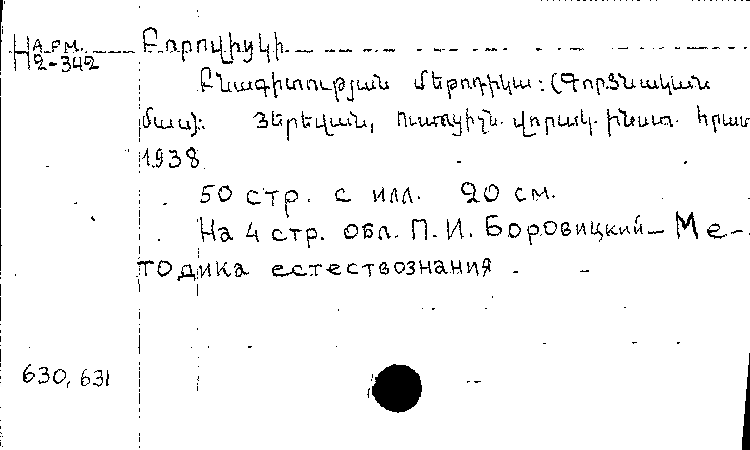 Н АРМ. 2-342 Բորովիցկի
Բնագիտության մեթոդիկա: (Գործնական
մաս): Յերեվան, Ուսուցիչն. վորակ. ինստ. հրատ
1938
50 стр. с илл. 20 см.
На 4 стр. обл. П. И. Боровицкий — Ме-
тодика естествознания
630, 631